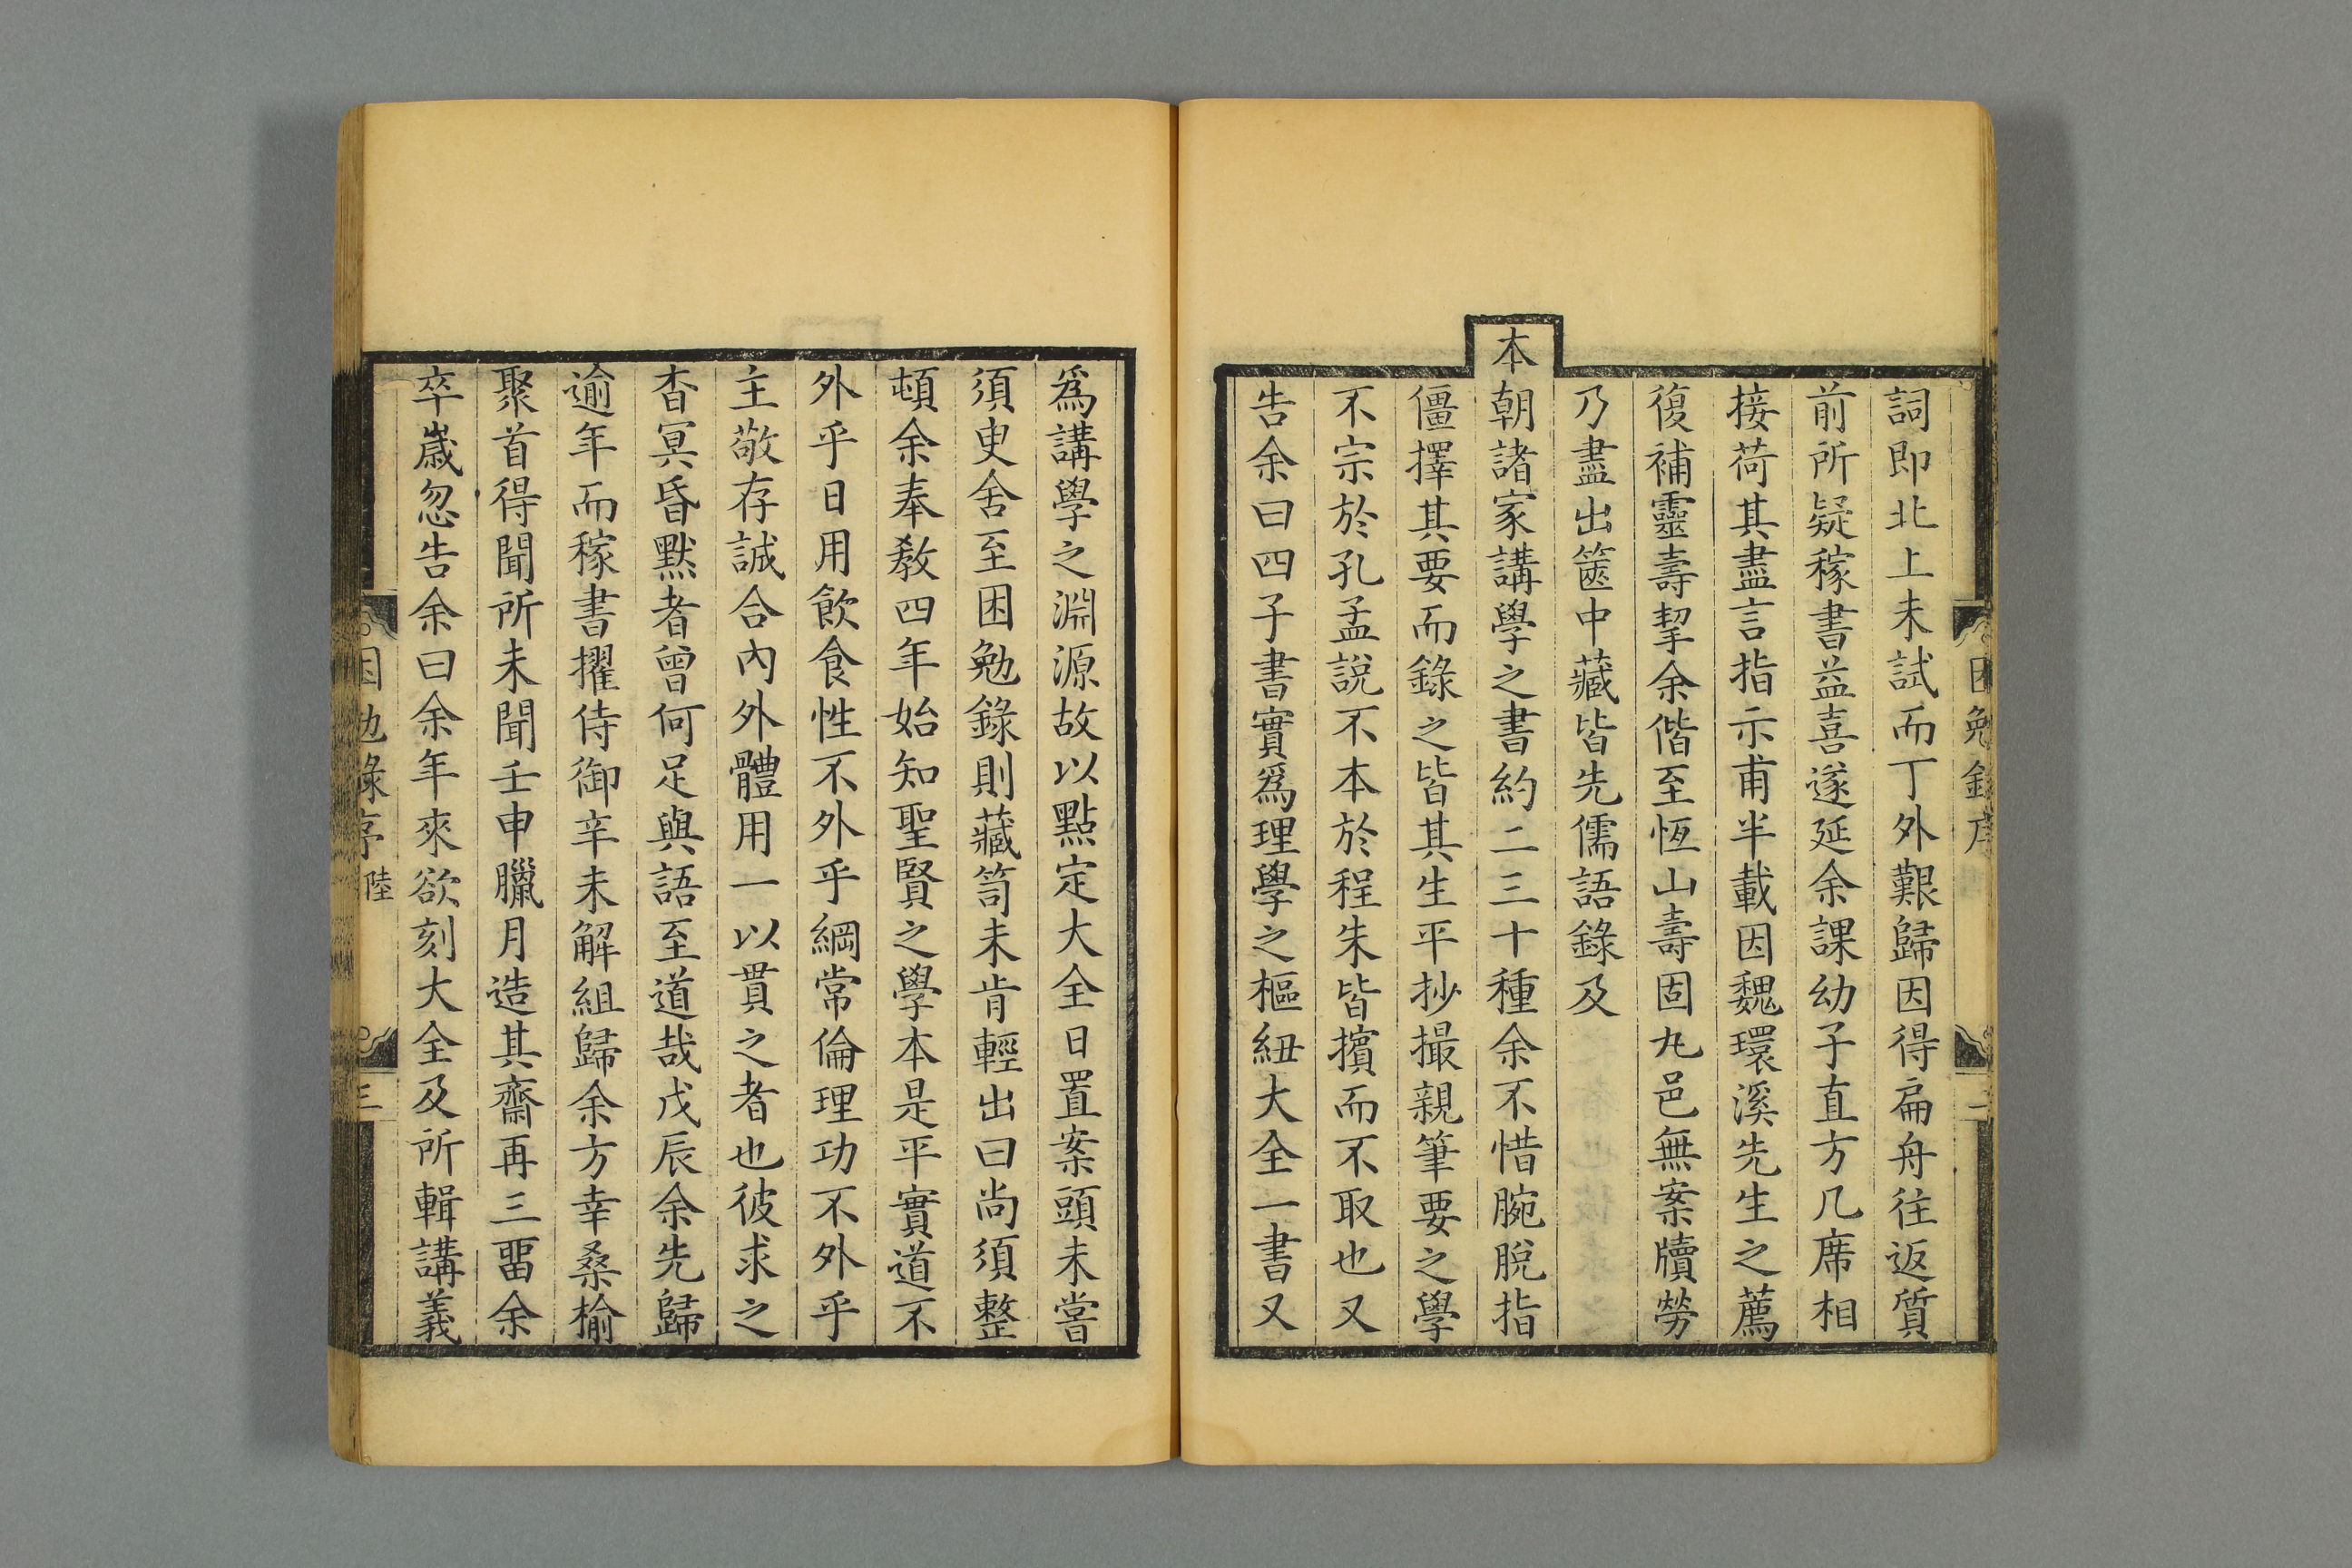 困勉錄序
二
詞即北上未試而丁外艱歸因得扁舟往返質
前所疑稼書益喜遂延余課幼子直方几席相
接荷其盡言指示甫半載因魏環溪先生之薦
復補靈壽挈余偕至恆山壽固九邑無案牘勞
乃盡出篋中藏皆先儒語錄及
本朝諸家講學之書約二三十種余不惜腕脫指
僵擇其要而錄之皆其生平抄撮親筆要之學
不宗於孔孟說不本於程朱皆擯而不取也又
告余曰四子書實爲理學之樞紐大全一書又
爲講學之淵源故以點定大全日置案頭未嘗
須臾舍至困勉錄則藏笥未肯輕出曰尚須整
頓余奉教四年始知聖賢之學本是平實道不
外乎日用飲食性不外乎綱常倫理功不外乎
主敬存誠合內外體用一以貫之者也彼求之
杳冥昏默者曾何足與語至道哉戊辰余先歸
逾年而稼書擢侍御辛未解組歸余方幸桑榆
聚首得聞所未聞壬申臘月造其齋再三畱余
卒歲忽告余曰余年來欲刻大全及所輯講義
困勉錄序 陸
三